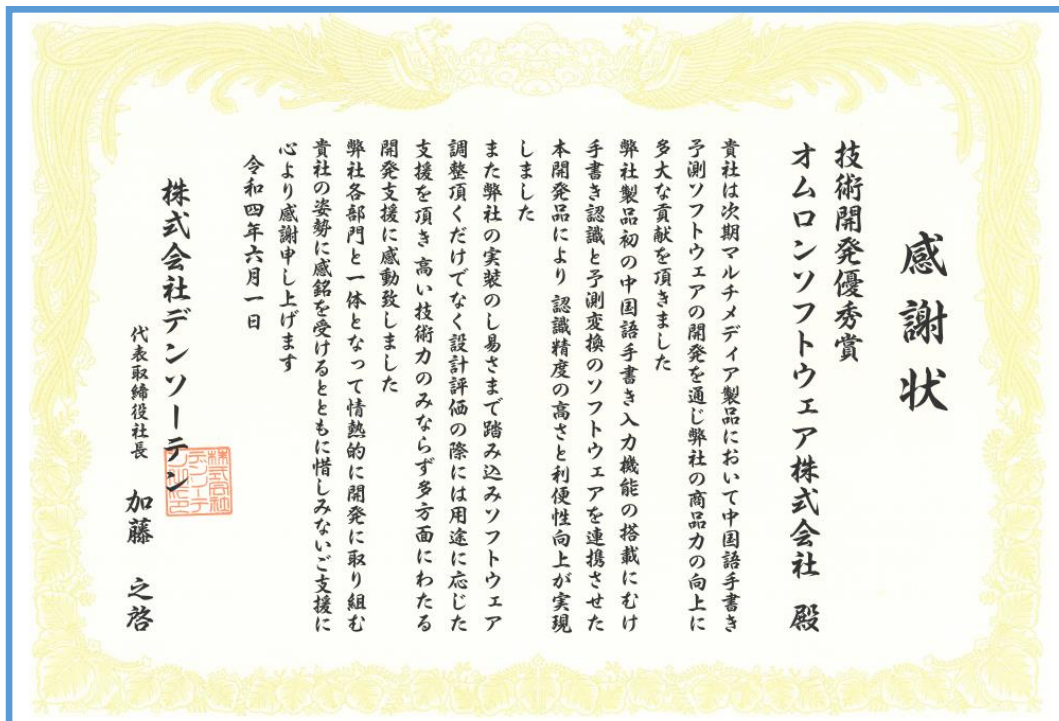 感謝状
技術開発優秀賞
オムロンソフトウェア株式会社 殿
貴社は次期マルチメディア製品において中国語手書き
予測ソフトウェアの開発を通じ弊社の商品力の向上に
多大な貢献を頂きました
弊社製品初の中国語手書き入力機能の搭載にむけ
手書き認識と予測変換のソフトウェアを連携させた
本開発品により 認識精度の高さと利便性向上が実現
しました
また弊社の実装のし易さまで踏み込みソフトウェア
調整頂くだけでなく設計評価の際には用途に応じた
支援を頂き 高い技術力のみならず多方面にわたる
開発支援に感動致しました
弊社各部門と一体となって情熱的に開発に取り組む
貴社の姿勢に感銘を受けるとともに惜しみないご支援に
心より感謝申し上げます
令和四年六月一日
株式会社デンソーテン
代表取締役社長 加藤 之啓